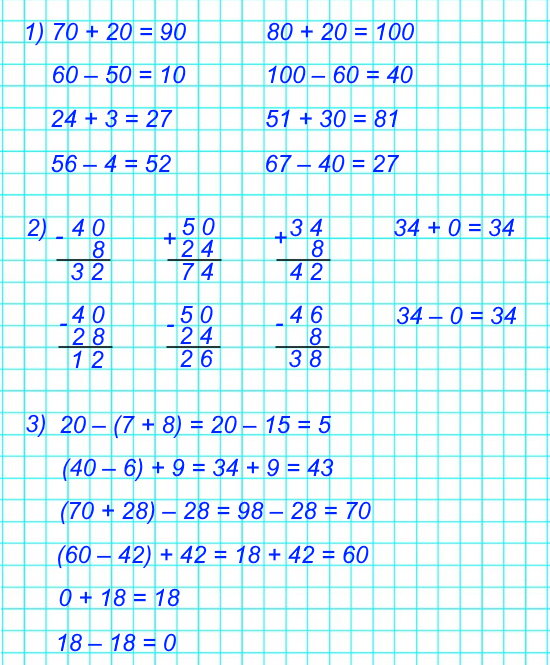 1) 70 + 20 = 90 80 + 20 = 100
60 – 50 = 10 100 – 60 = 40
24 + 3 = 27 51 + 30 = 81
56 – 4 = 52 67 – 40 = 27
2) - 4 0 + 5 0 + 3 4 34 + 0 = 34
8 2 4 8
3 2 7 4 4 2
- 4 0 - 5 0 - 4 6 34 – 0 = 34
2 8 2 4 8
1 2 2 6 3 8
3) 20 – (7 + 8) = 20 – 15 = 5
(40 – 6) + 9 = 34 + 9 = 43
(70 + 28) – 28 = 98 – 28 = 70
(60 – 42) + 42 = 18 + 42 = 60
0 + 18 = 18
18 – 18 = 0